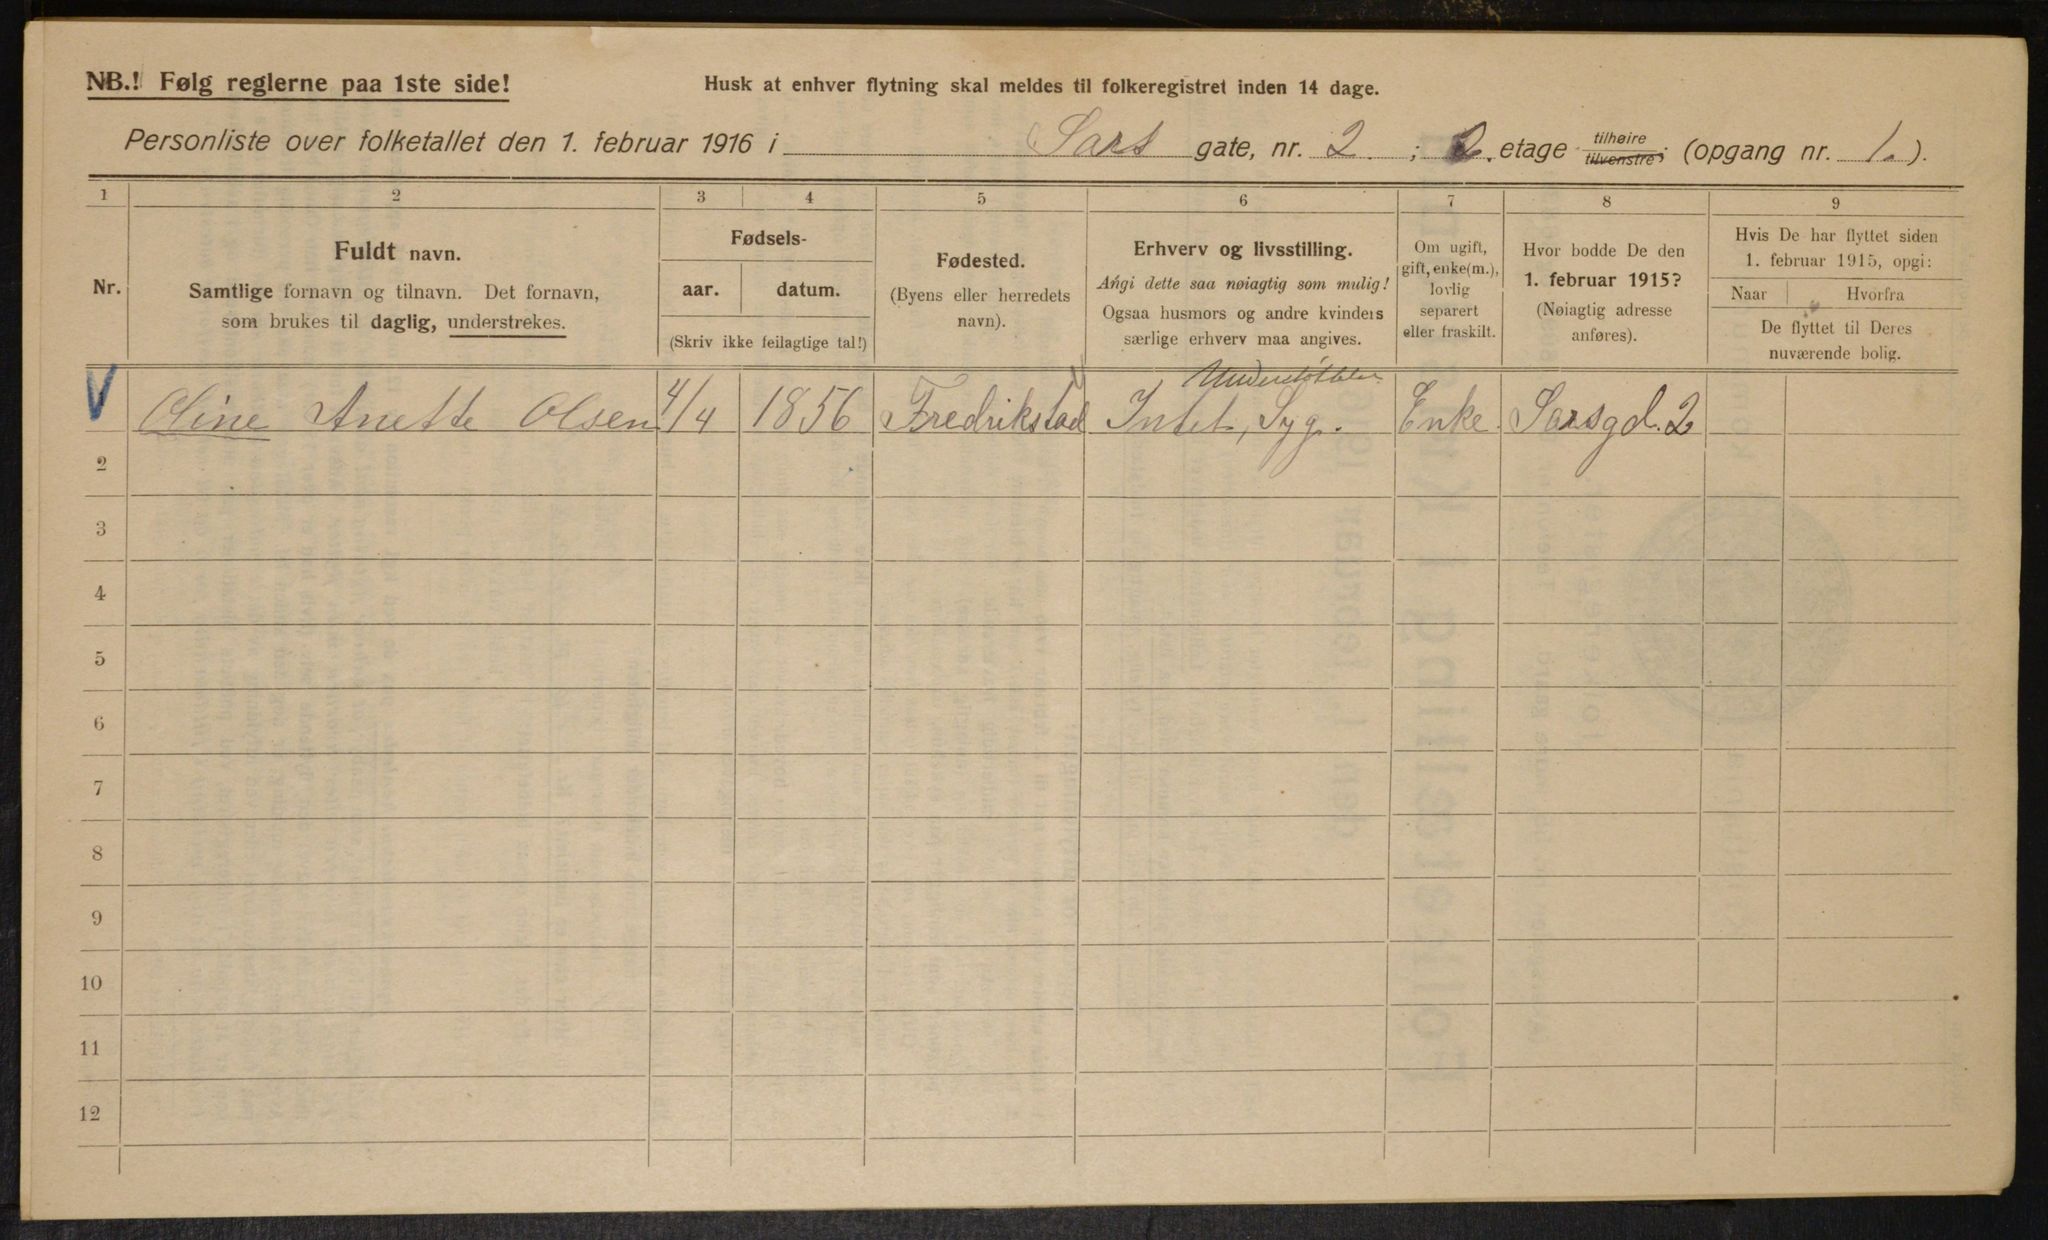 NB.! Følg reglerne paa 1ste side!
Husk at enhver flytning skal meldes til folkeregistret inden 14 dage.
Personliste over folketallet den 1. februar 1916 i Sars gate, nr. 2. ; 2. etage tilhøire tilvenstre; (opgang nr. 1.).
1 2 3 4 5 6 7 8 9
Nr.
Fuldt navn.
Samtlige fornavn og tilnavn. Det fornavn,
som brukes til daglig, understrekes.
Fødsels-
aar. datum.
(Skriv ikke feilagtige tal!)
Fødested.
(Byens eller herredets
navn).
Erhverv og livsstilling.
Angi dette saa nøiagtig som mulig!
Ogsaa husmors og andre kvinders
særlige erhverv maa angives.
Om ugift,
gift, enke(m.),
lovlig
separert
eller fraskilt.
Hvor bodde De den
1. februar 1915?
(Nøiagtig adresse
anføres).
Hvis De har flyttet siden
1. februar 1915, opgi:
Naar Hvorfra
De flyttet til Deres
nuværende bolig.
Oline Anette Olsen 4/4 1856 Fredrikstad Intet, Syg. Enke Sarsgd. 2
2
3
4
5
6
7
8
9
10
11
12